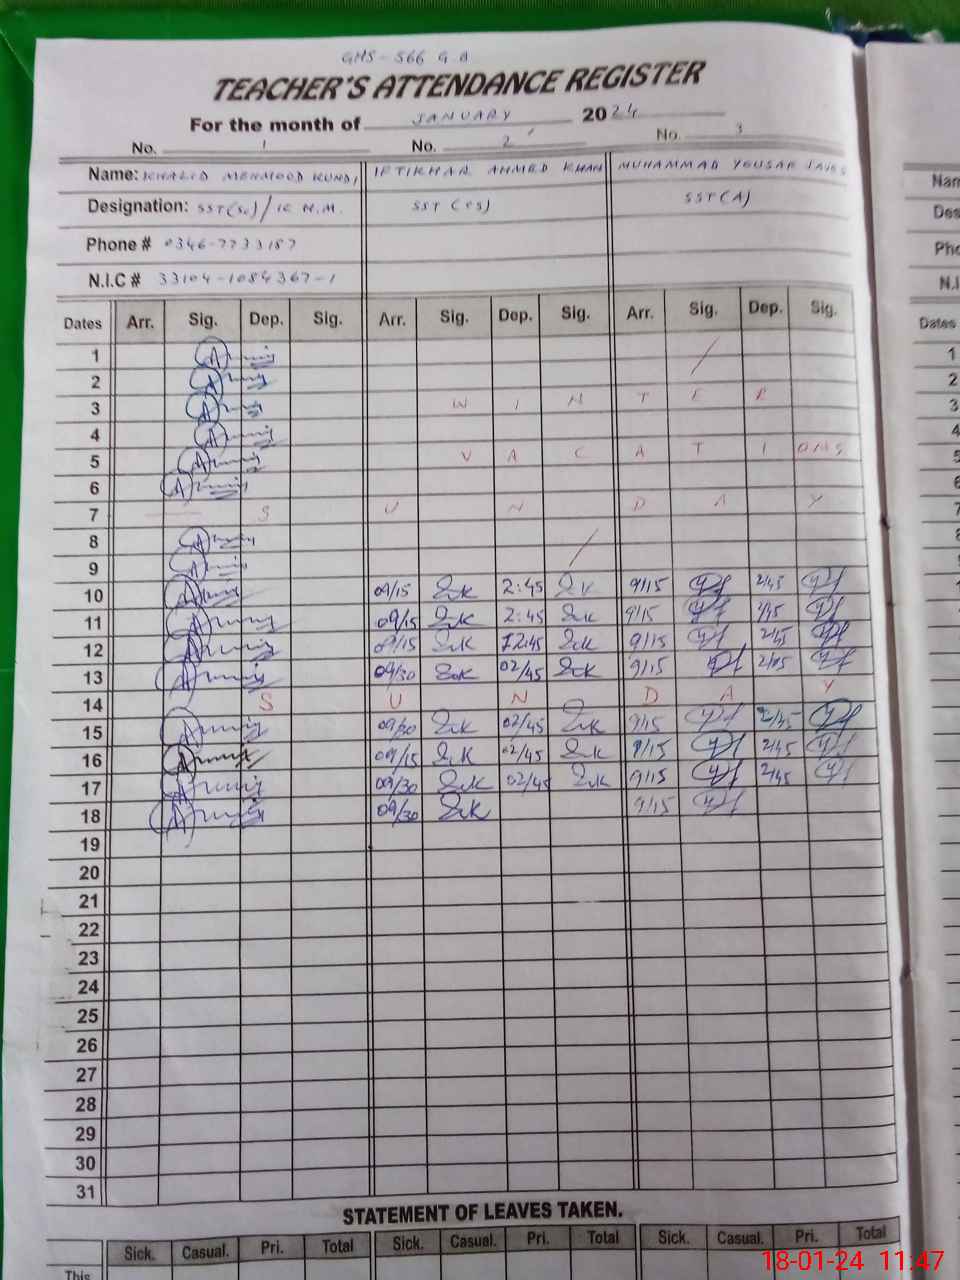 GMS - 566 G.B
TEACHER'S ATTENDANCE REGISTER
For the month of JANUARY 2024
No. 1 No. 2 No. 3
Name: KHALID MEHMOOD KUNDI IFTIKHAR AHMED KHAN MUHAMMAD YOUSAF
Designation: SST(Sc)/IC H.M. SST (CS) SST(A)
Phone # 0346-7733187
N.I.C # 33104-1084367-1
Dates Arr. Sig. Dep. Sig. Arr. Sig. Dep. Sig. Arr. Sig. Dep. Sig.
1
2
3 W I N T E R
4
5 V A C A T I ONS
6
7 S U N D A Y
8
9
10 09/15 2:45 9/15 2/45
11 09/15 2:45 9/15 2/45
12 09/15 9/15 2/45
13 09/30 02/45 9/15 2/45
14 S U N D A Y
15 09/30 02/45 9/15 2/45
16 09/15 02/45 9/15 2/45
17 09/30 02/45 9/15 2/45
18 09/30 9/15
19
20
21
22
23
24
25
26
27
28
29
30
31
STATEMENT OF LEAVES TAKEN.
Sick. Casual. Pri. Total Sick. Casual. Pri. Total Sick. Casual. Pri. Total
This
Nam
Des
Pho
N.I
Dates
1
2
3
4
5
6
7
8
9
10
11
12
13
14
15
16
17
18
19
20
21
22
23
24
25
26
27
28
29
30
31
18-01-24 11:47